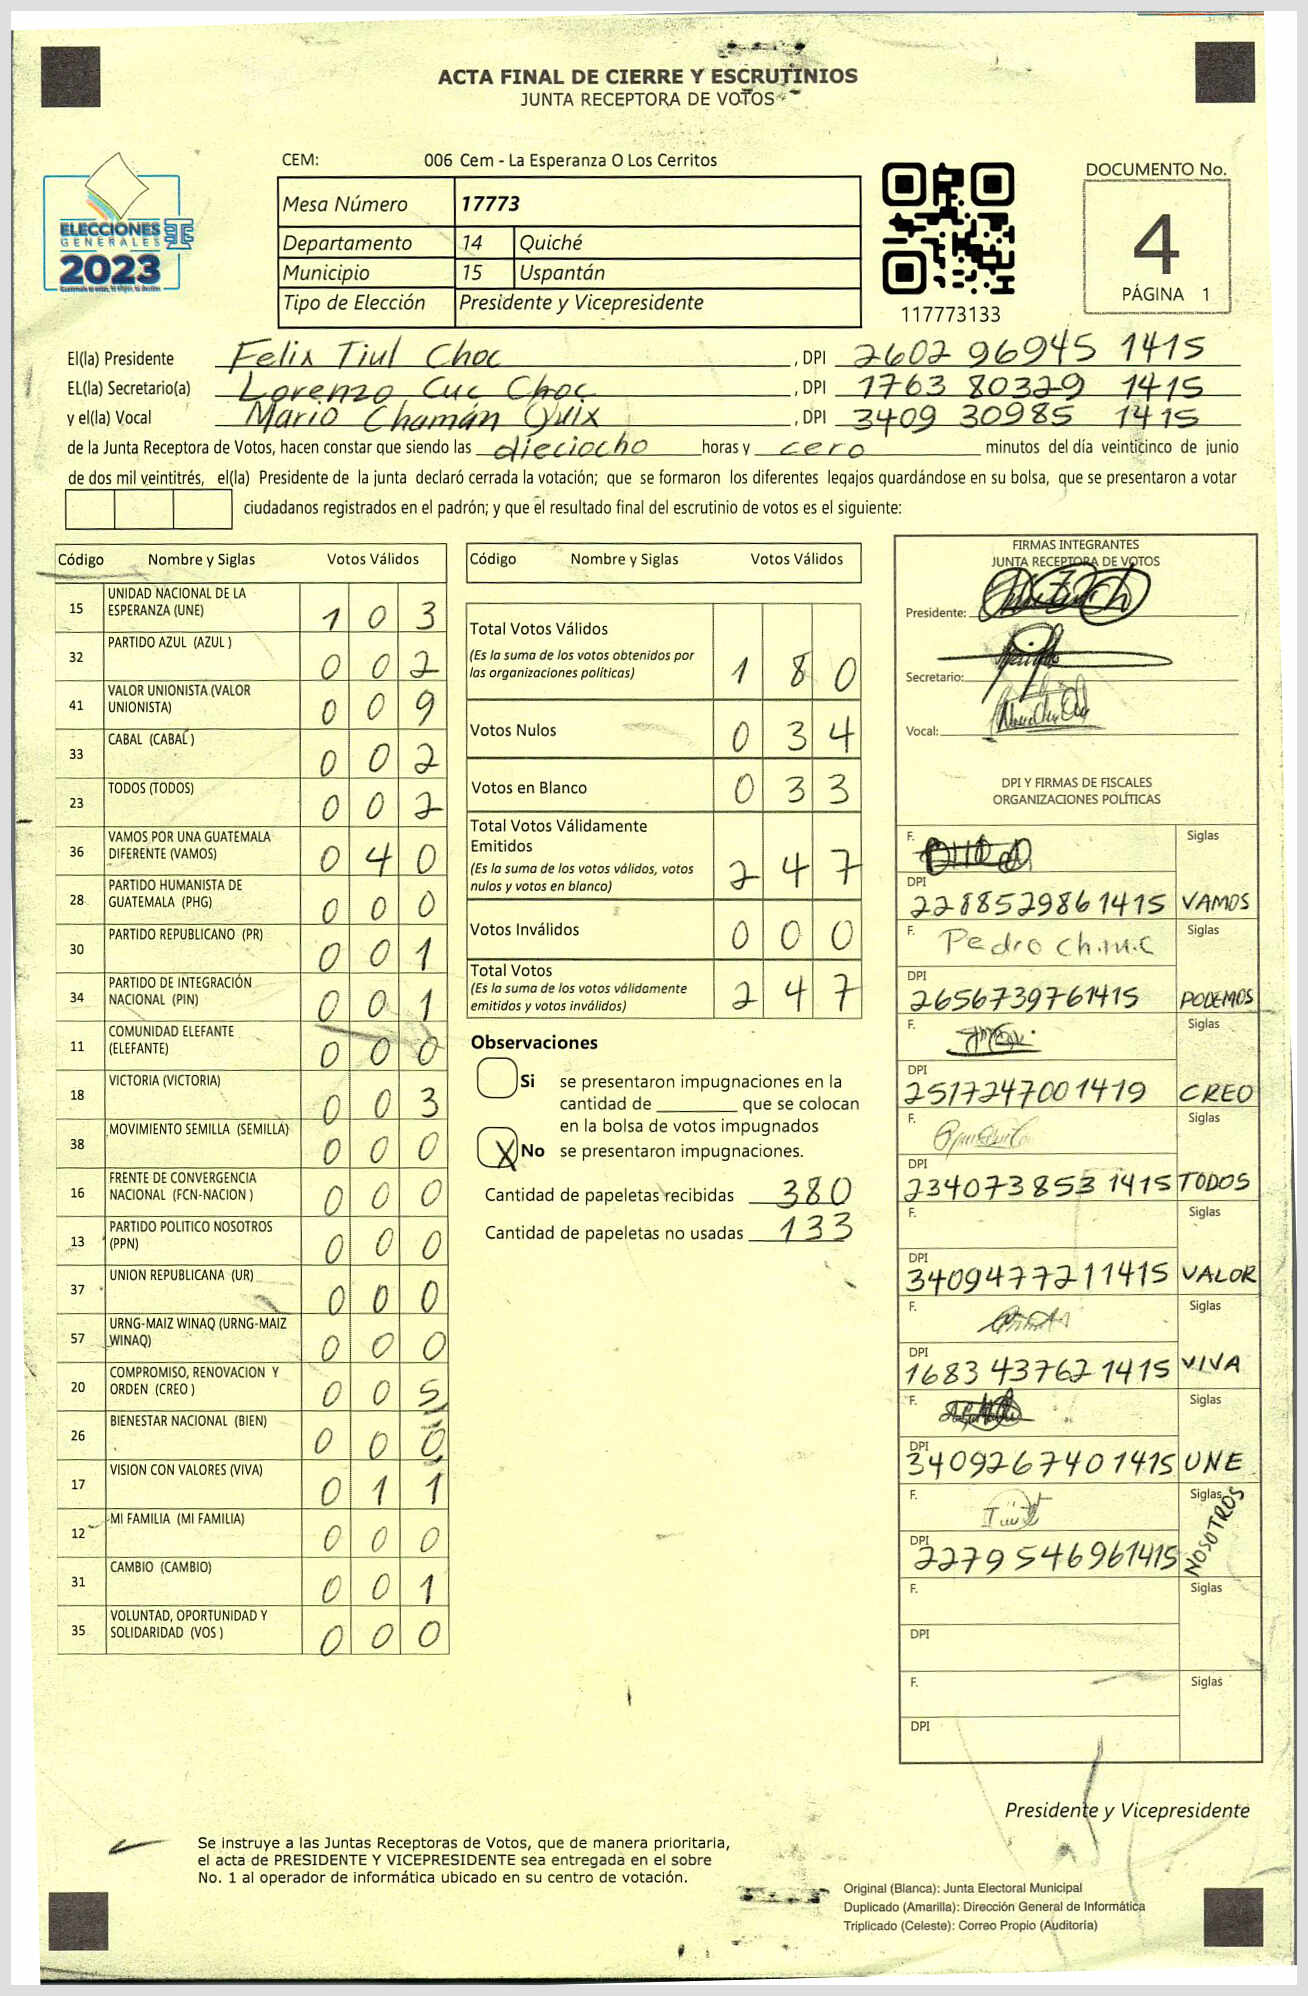 ACTA FINAL DE CIERRE Y ESCRUTINIOS
JUNTA RECEPTORA DE VOTOS
CEM: 006 Cem - La Esperanza O Los Cerritos
Mesa Número 17773
Departamento 14 Quiché
Municipio 15 Uspantán
Tipo de Elección Presidente y Vicepresidente
ELECCIONES
GENERALES
2023
117773133
DOCUMENTO No.
4
PÁGINA 1
El(la) Presidente Felix Tiul Choc , DPI 2602 96945 1415
EL(la) Secretario(a) Lorenzo Cuc Choc , DPI 1763 80329 1415
y el(la) Vocal Mario Chamán Quix , DPI 3409 30985 1415
de la Junta Receptora de Votos, hacen constar que siendo las dieciocho horas y cero minutos del día veinticinco de junio
de dos mil veintitrés, el(la) Presidente de la junta declaró cerrada la votación; que se formaron los diferentes legajos guardándose en su bolsa, que se presentaron a votar
ciudadanos registrados en el padrón; y que el resultado final del escrutinio de votos es el siguiente:
Código Nombre y Siglas Votos Válidos
15 UNIDAD NACIONAL DE LA
ESPERANZA (UNE) 1 0 3
32 PARTIDO AZUL (AZUL ) 0 0 2
41 VALOR UNIONISTA (VALOR
UNIONISTA) 0 0 9
33 CABAL (CABAL ) 0 0 2
23 TODOS (TODOS) 0 0 2
36 VAMOS POR UNA GUATEMALA
DIFERENTE (VAMOS) 0 4 0
28 PARTIDO HUMANISTA DE
GUATEMALA (PHG) 0 0 0
30 PARTIDO REPUBLICANO (PR) 0 0 1
34 PARTIDO DE INTEGRACIÓN
NACIONAL (PIN) 0 0 1
11 COMUNIDAD ELEFANTE
(ELEFANTE) 0 0 0
18 VICTORIA (VICTORIA) 0 0 3
38 MOVIMIENTO SEMILLA (SEMILLA) 0 0 0
16 FRENTE DE CONVERGENCIA
NACIONAL (FCN-NACION ) 0 0 0
13 PARTIDO POLITICO NOSOTROS
(PPN) 0 0 0
37 UNION REPUBLICANA (UR) 0 0 0
57 URNG-MAIZ WINAQ (URNG-MAIZ
WINAQ) 0 0 0
20 COMPROMISO, RENOVACION Y
ORDEN (CREO ) 0 0 5
26 BIENESTAR NACIONAL (BIEN) 0 0 0
17 VISION CON VALORES (VIVA) 0 1 1
12 MI FAMILIA (MI FAMILIA) 0 0 0
31 CAMBIO (CAMBIO) 0 0 1
35 VOLUNTAD, OPORTUNIDAD Y
SOLIDARIDAD (VOS ) 0 0 0
Código Nombre y Siglas Votos Válidos
Total Votos Válidos
(Es la suma de los votos obtenidos por
las organizaciones políticas) 1 8 0
Votos Nulos 0 3 4
Votos en Blanco 0 3 3
Total Votos Válidamente
Emitidos
(Es la suma de los votos válidos, votos
nulos y votos en blanco) 2 4 7
Votos Inválidos 0 0 0
Total Votos
(Es la suma de los votos válidamente
emitidos y votos inválidos) 2 4 7
Observaciones
Si se presentaron impugnaciones en la
cantidad de ________ que se colocan
en la bolsa de votos impugnados
X No se presentaron impugnaciones.
Cantidad de papeletas recibidas 380
Cantidad de papeletas no usadas 133
FIRMAS INTEGRANTES
JUNTA RECEPTORA DE VOTOS
Presidente:
Secretario:
Vocal:
DPI Y FIRMAS DE FISCALES
ORGANIZACIONES POLÍTICAS
F. Siglas
DPI
2288529861415 VAMOS
F. Siglas
DPI
2656739761415 PODEMOS
F. Siglas
DPI
2517247001419 CREO
F. Siglas
DPI
234073853 1415 TODOS
F. Siglas
DPI
3409477211415 VALOR
F. Siglas
DPI
1683 43762 1415 VIVA
F. Siglas
DPI
3409267401415 UNE
F. Siglas
DPI
2279546961415 NOSOTROS
F. Siglas
DPI
F. Siglas
DPI
Presidente y Vicepresidente
Se instruye a las Juntas Receptoras de Votos, que de manera prioritaria,
el acta de PRESIDENTE Y VICEPRESIDENTE sea entregada en el sobre
No. 1 al operador de informática ubicado en su centro de votación.
Original (Blanca): Junta Electoral Municipal
Duplicado (Amarilla): Dirección General de Informática
Triplicado (Celeste): Correo Propio (Auditoría)